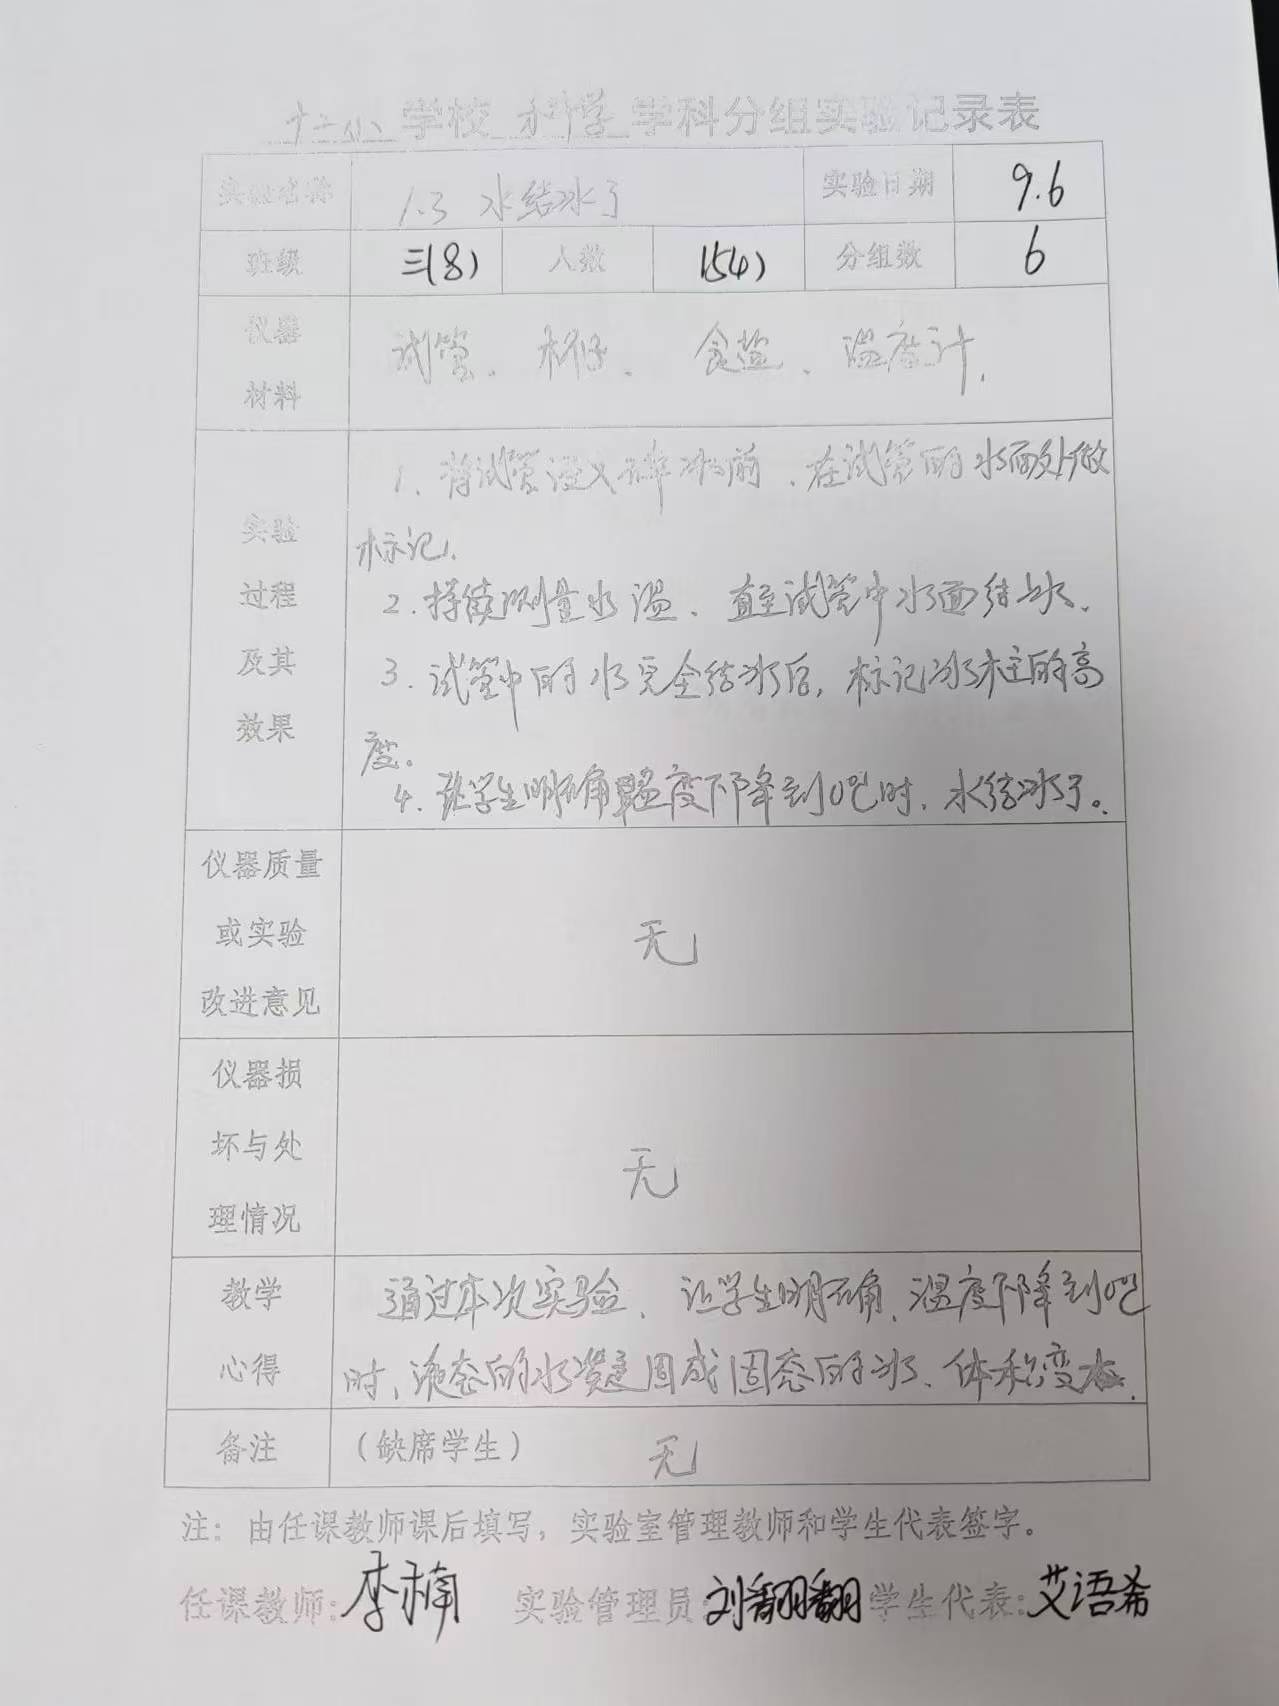 十二小学校 科学 学科分组实验记录表
实验名称 1.3 水结冰了 实验日期 9.6
班级 三(8) 人数 (54) 分组数 6
仪器
材料
试管、杯子、食盐、温度计.
实验
过程
及其
效果
1. 将试管浸入碎冰前、在试管的水面处做
标记.
2. 持续测量水温、直至试管中水面结冰.
3. 试管中的水完全结冰后, 标记冰柱的高
度。
4. 让学生明确温度下降到0℃时, 水结冰了。
仪器质量
或实验
改进意见
无
仪器损
坏与处
理情况
无
教学
心得
通过本次实验、让学生明确、温度下降到0℃
时、液态的水凝固成固态的冰、体积变大.
备注 (缺席学生) 无
注:由任课教师课后填写,实验室管理教师和学生代表签字。
任课教师:李楠 实验管理员:刘翻翻 学生代表:艾语希